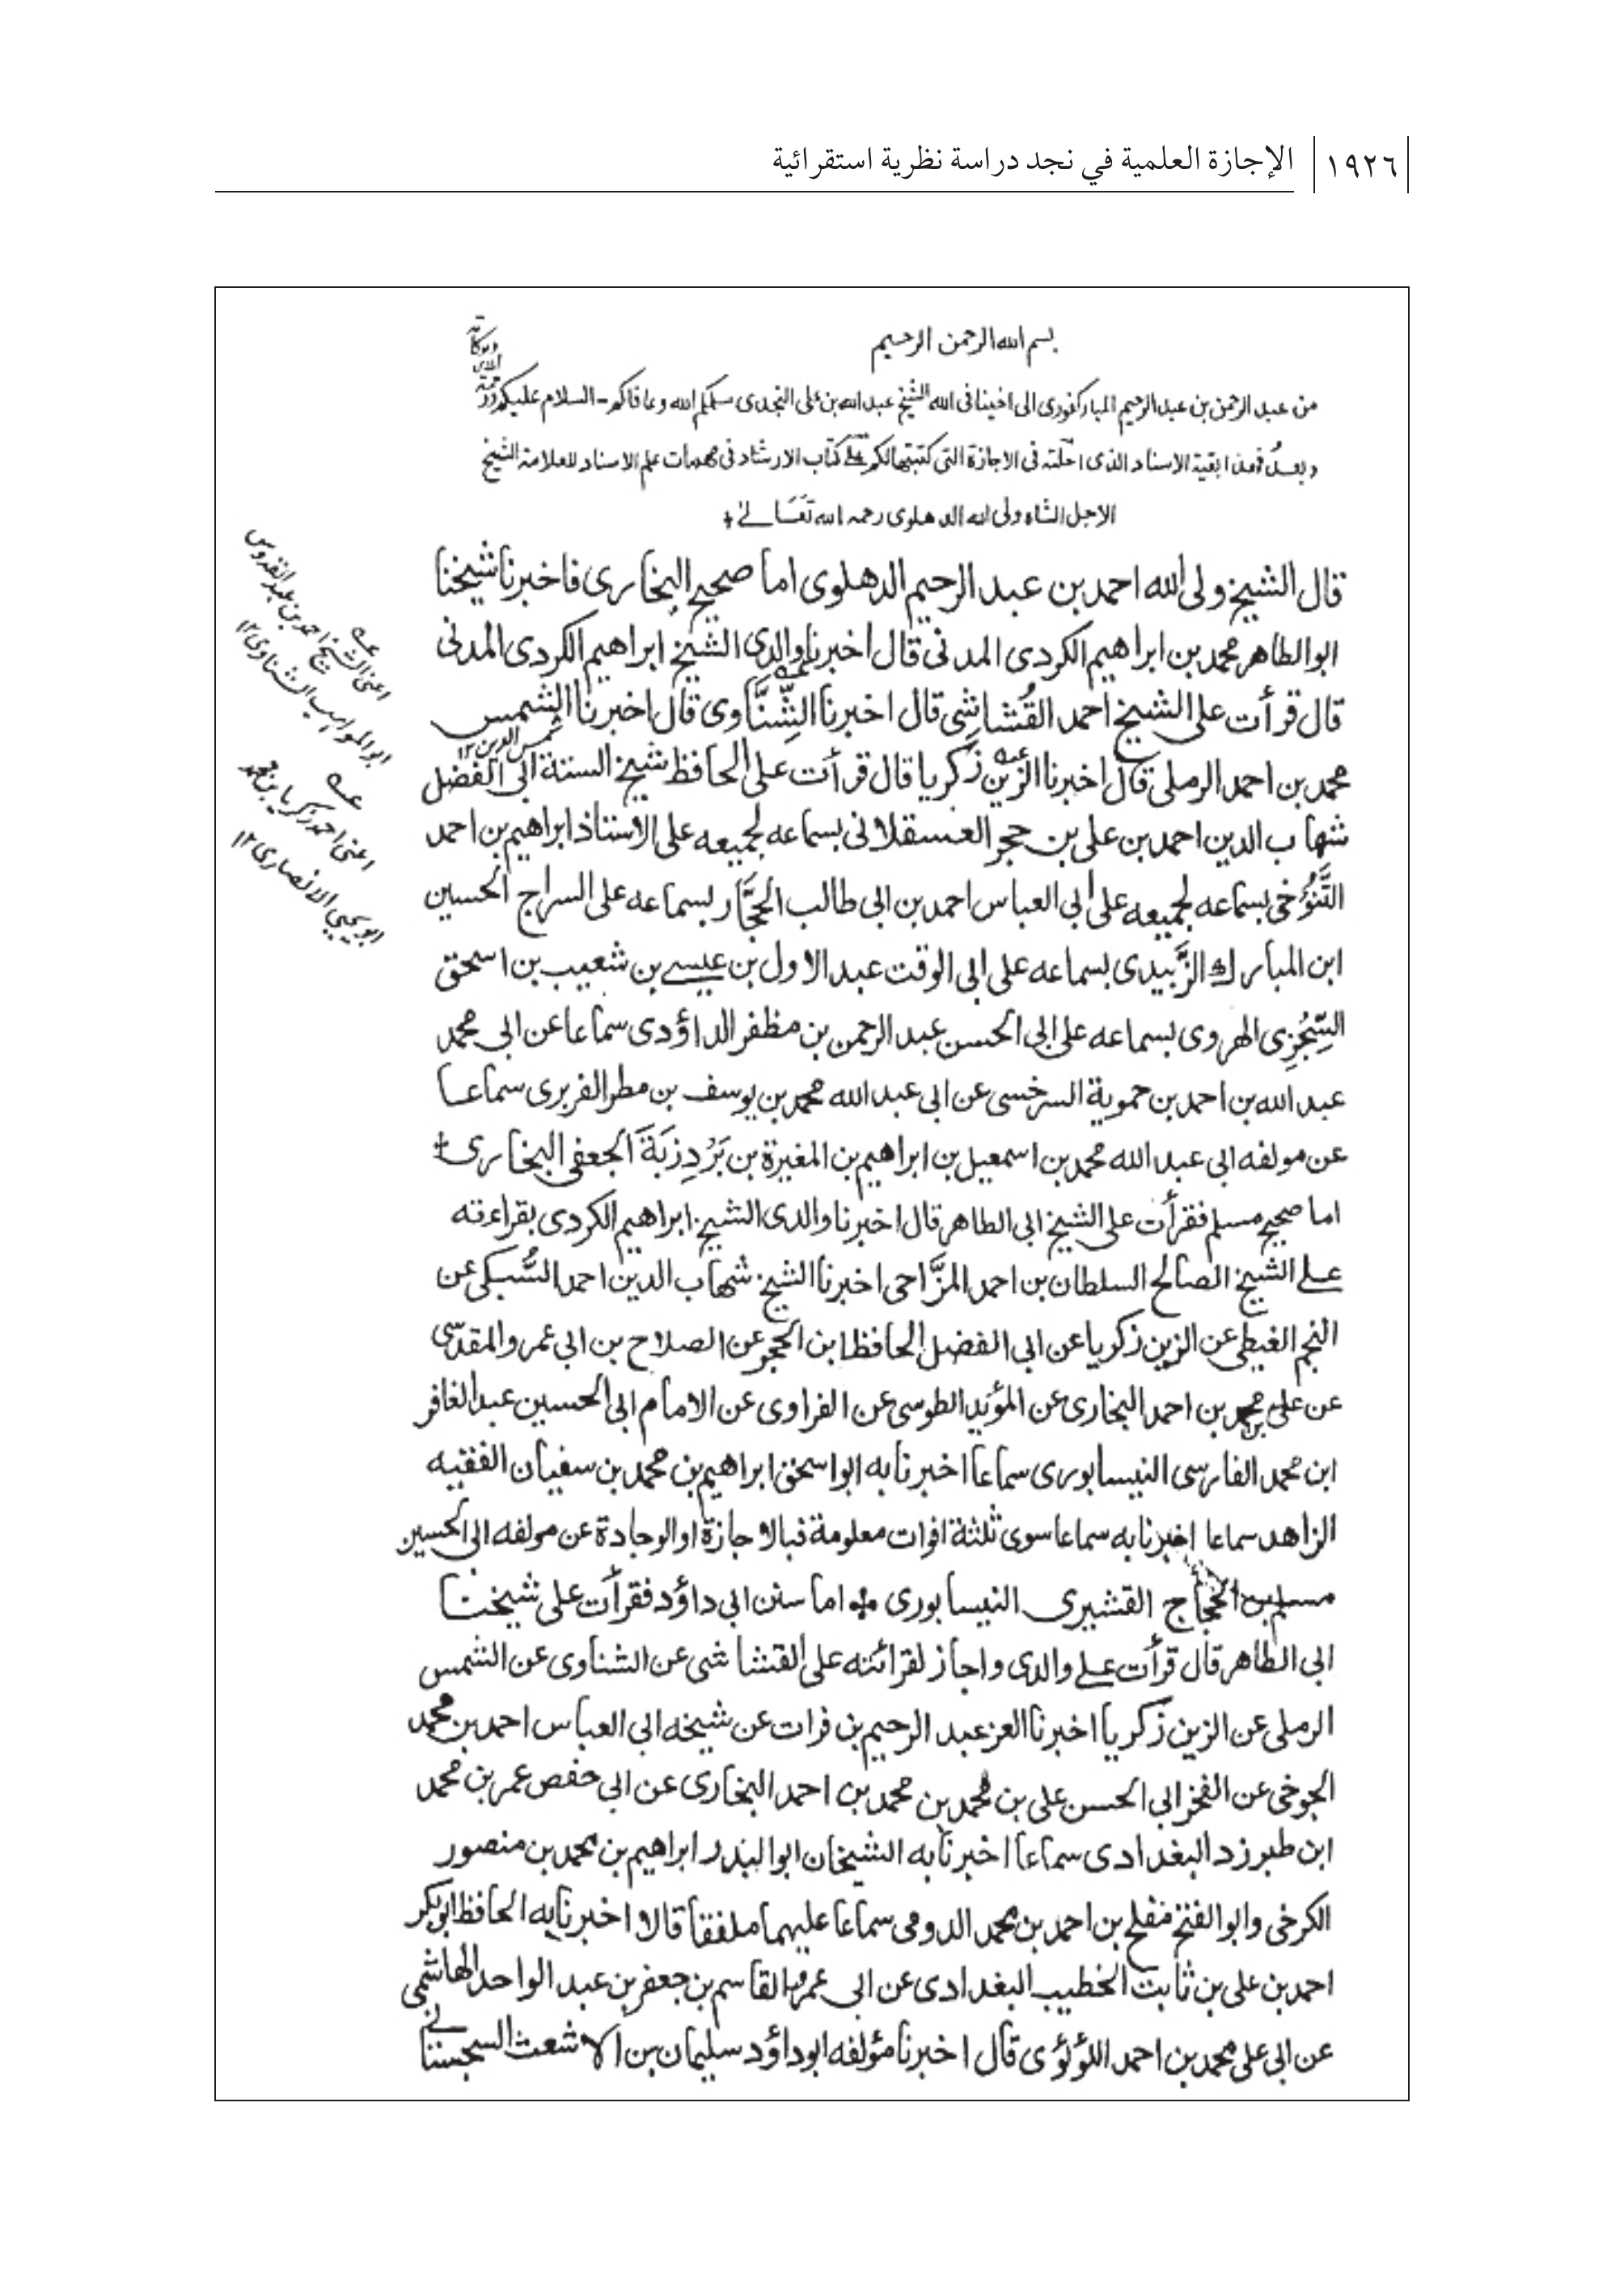 ١٩٢٦ الإجازة العلمية في نجد دراسة نظرية استقرائية
بسم الله الرحمن الرحيم
من عبد الرحمن بن عبد الرحيم المباركفوري الى اخينا فى الله الشيخ عبد الله بن على النجدى سلمكم الله وعافاكم - السلام عليكم ورحمة الله وبركاته
وبعد فهذا بقية الاسناد الذى احلته فى الاجازة التى كتبتها لكم على كتاب الارشاد فى مهمات علم الاسناد للعلامة الشيخ
الاجل الشاه ولى الله الدهلوى رحمه الله تعالى
قال الشيخ ولى الله احمد بن عبد الرحيم الدهلوى اما صحيح البخارى فاخبرنا شيخنا
ابو الطاهر محمد بن ابراهيم الكردى المدنى قال اخبرنا والدى الشيخ ابراهيم الكردى المدنى
قال قرأت على الشيخ احمد القُشاشى قال اخبرنا الشِّنَّاوى قال اخبرنا الشمس
شمس الدين ١٢
محمد بن احمد الرملى قال اخبرنا الزين زكريا قال قرأت على الحافظ شيخ السنة ابى الفضل
شهاب الدين احمد بن على بن حجر العسقلانى بسماعه لجميعه على الاستاذ ابراهيم بن احمد
التَّنُوْخى بسماعه لجميعه على ابى العباس احمد بن ابى طالب الحجَّار بسماعه على السراج الحسين
ابن المبارك الزَّبيدى بسماعه على ابى الوقت عبد الاول بن عيسے بن شعيب بن اسحق
السِّجْزِى الهروى بسماعه على ابى الحسن عبد الرحمن بن مظفر الداؤدى سماعا عن ابى محمد
عبد الله بن احمد بن حموية السرخسى عن ابى عبد الله محمد بن يوسف بن مطر الفربرى سماعا
عن مولفه ابى عبد الله محمد بن اسمعيل بن ابراهيم بن المغيرة بن بَرْدِزبَةَ الجعفى البخارى
اما صحيح مسلم فقرأت على الشيخ ابى الطاهر قال اخبرنا والدى الشيخ ابراهيم الكردى بقراءته
علے الشيخ الصالح السلطان بن احمد المزَّاحى اخبرنا الشيخ شهاب الدين احمد السُّبكى عن
النجم الغيطى عن الزين زكريا عن ابى الفضل الحافظ ابن الحجر عن الصلاح بن ابى عمرو المقدسى
عن على بن احمد البخارى عن المؤيد الطوسى عن الفراوى عن الامام ابى الحسين عبد الغافر
ابن محمد الفارسى النيسابورى سماعا اخبرنا به ابو اسحق ابراهيم بن محمد بن سفيان الفقيه
الزاهد سماعا اخبرنا به سماعا سوى ثلثة افوات معلومة فبالاجازة او الوجادة عن مولفه ابى الحسين
مسلم بن الحجاج القشيرى النيسابورى اما سنن ابى داؤد فقرأت على شيخنا
ابى الطاهر قال قرأت علے والدى واجاز لقرائته على القشاشى عن الشناوى عن الشمس
الرملى عن الزين زكريا اخبرنا العز عبد الرحيم بن فرات عن شيخه ابى العباس احمد بن محمد
الجوخى عن الفخر ابى الحسن على بن محمد بن محمد بن احمد البخارى عن ابى حفص عمر بن محمد
ابن طبرزد البغدادى سماعا اخبرنا به الشيخان ابو البدر ابراهيم بن محمد بن منصور
الكرخى وابو الفتح مفلح بن احمد بن محمد الدومى سماعا عليهما ملفقا قالا اخبرنا به الحافظ ابو بكر
احمد بن على بن ثابت الخطيب البغدادى عن ابى عمر القاسم بن جعفر بن عبد الواحد الهاشمى
عن ابى على محمد بن احمد اللؤلؤى قال اخبرنا مؤلفه ابو داؤد سليمان بن الاشعث السجستانى
عه
اعنى الشيخ احمد بن عبد القدوس
ابو المواهب الشناوى ١٢
عه
اعنى احمد زكريا بن محمد
ابو يحيى الانصارى ١٢